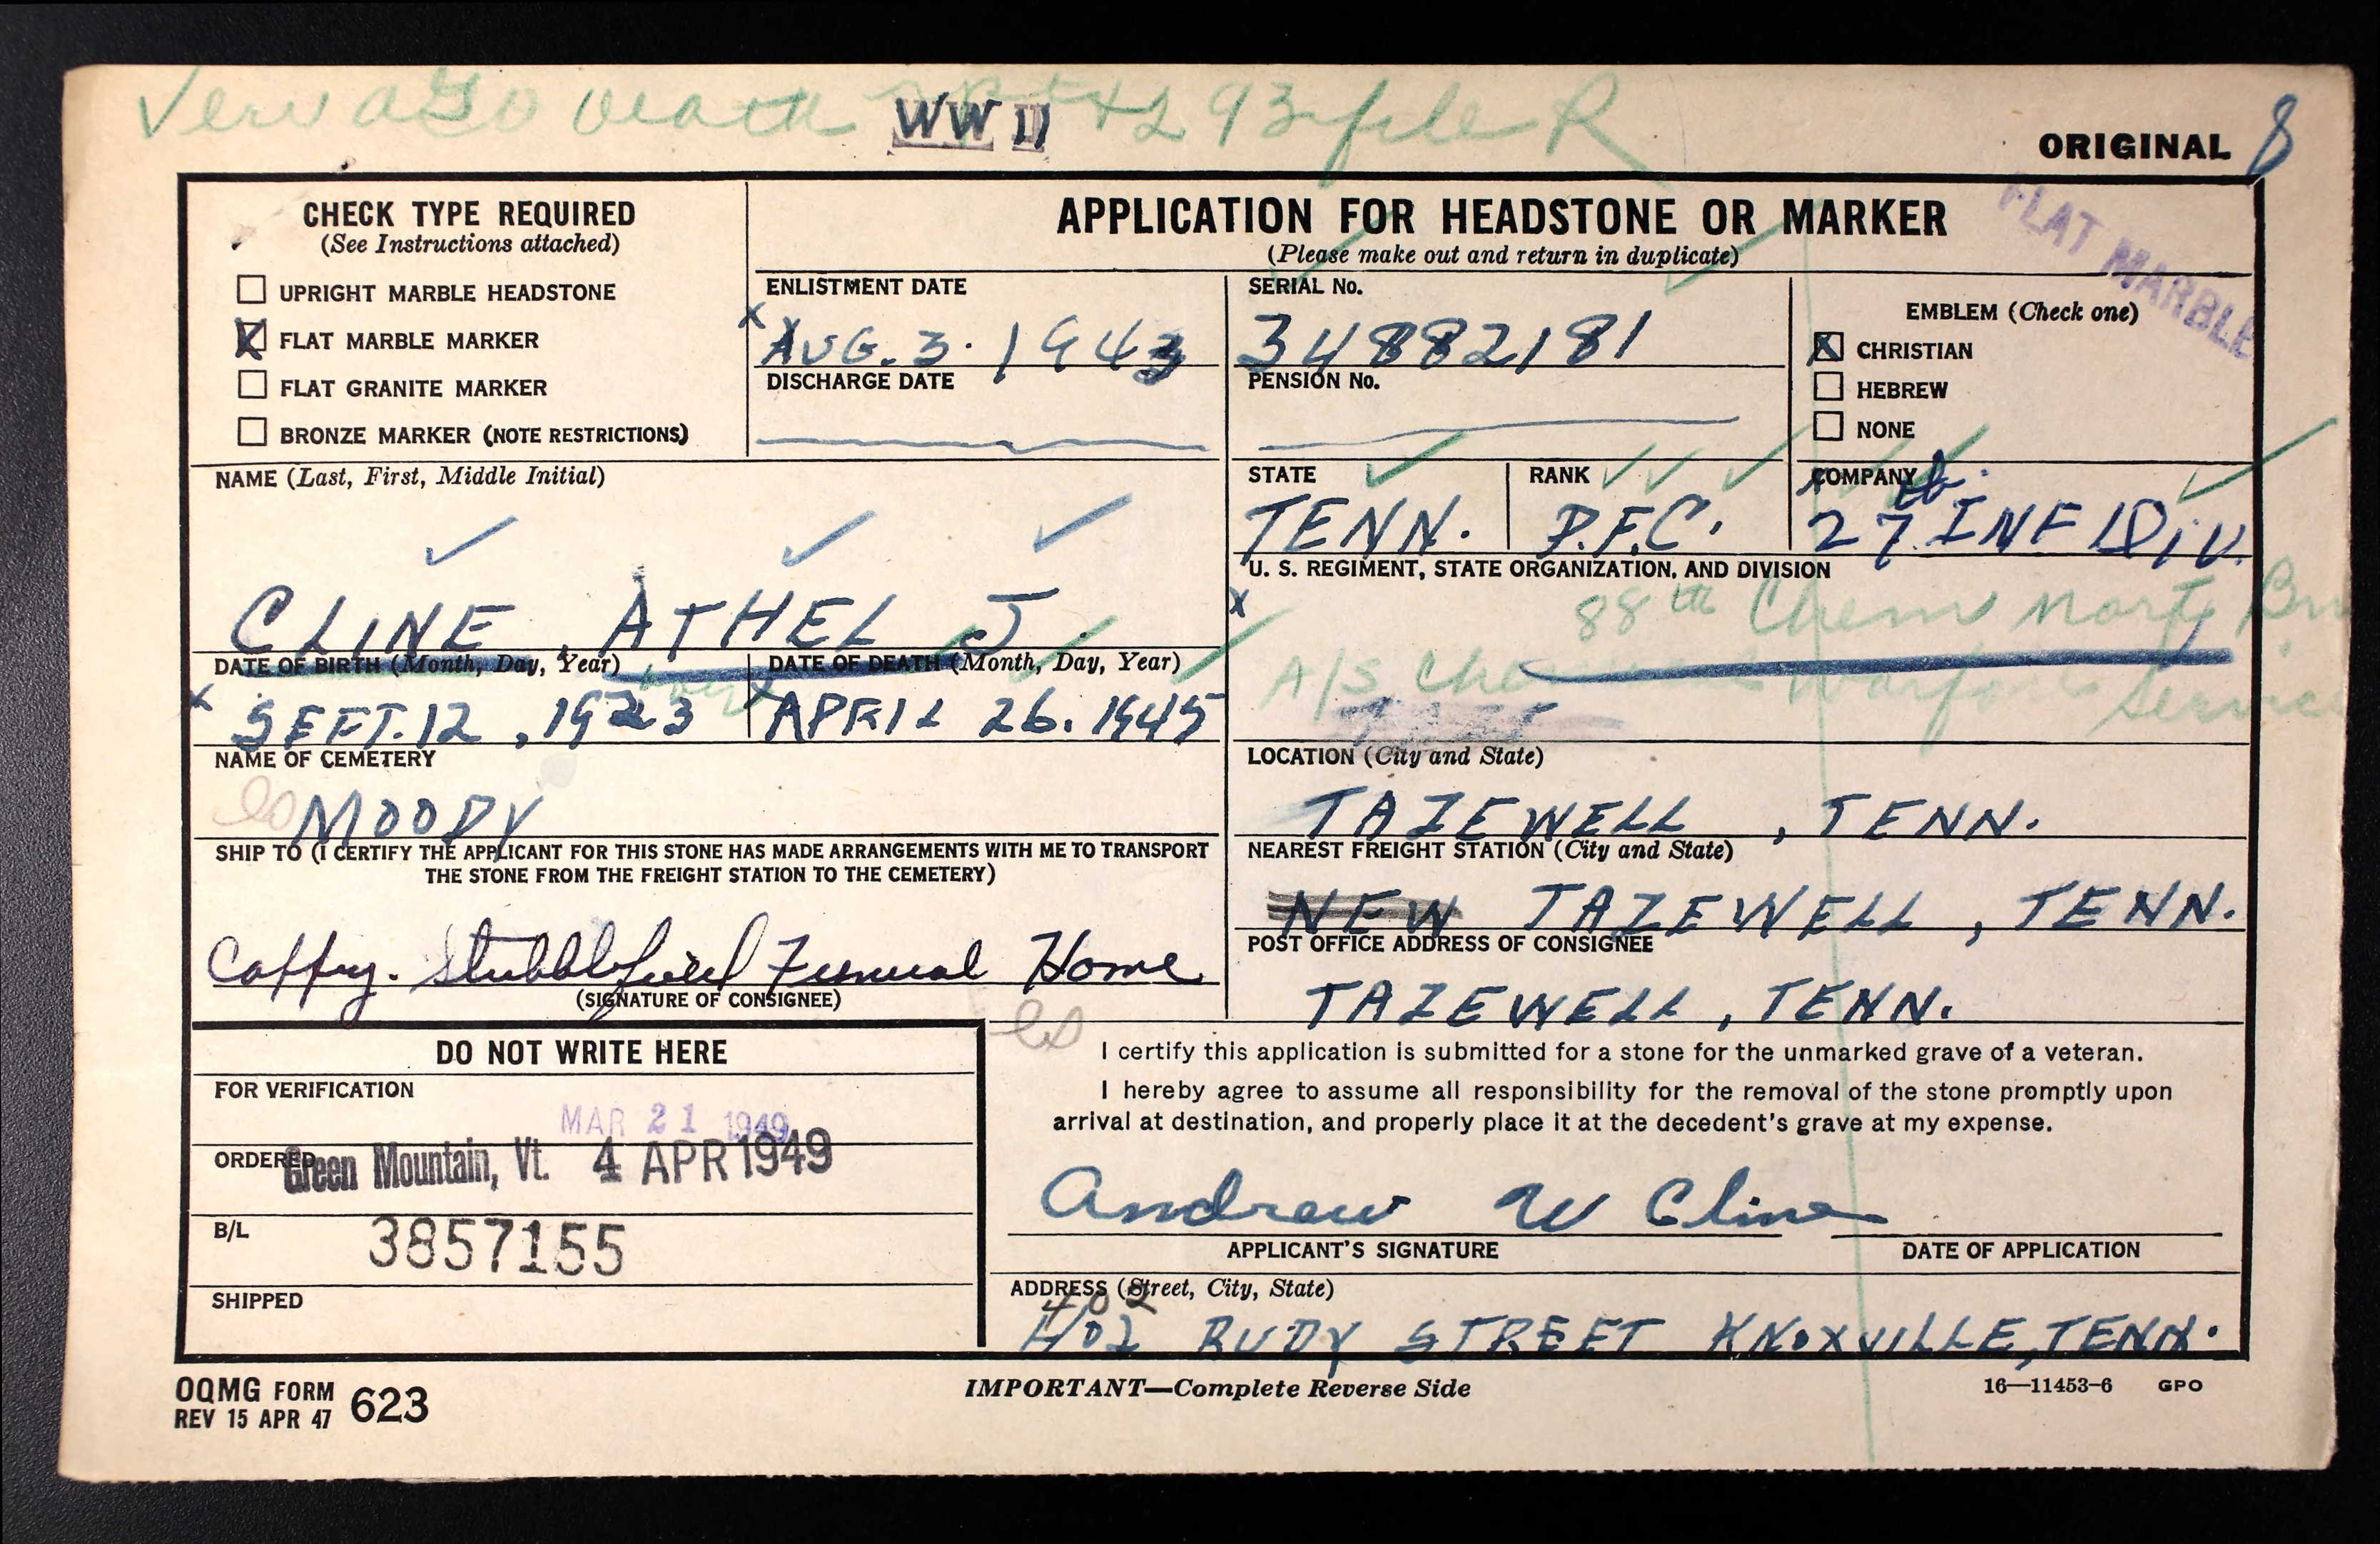 Veri AGO Death rpt 42 93 file R
WW II
ORIGINAL 8
CHECK TYPE REQUIRED
(See Instructions attached)
UPRIGHT MARBLE HEADSTONE
X FLAT MARBLE MARKER
FLAT GRANITE MARKER
BRONZE MARKER (NOTE RESTRICTIONS)
APPLICATION FOR HEADSTONE OR MARKER
(Please make out and return in duplicate)
FLAT MARBLE
ENLISTMENT DATE
X AUG. 3. 1943
DISCHARGE DATE
SERIAL No.
34882181
PENSION No.
EMBLEM (Check one)
X CHRISTIAN
HEBREW
NONE
NAME (Last, First, Middle Initial)
CLINE, ATHEL J.
STATE
TENN.
RANK
P.F.C.
COMPANY
27 INF DIV.
U. S. REGIMENT, STATE ORGANIZATION, AND DIVISION
X
88th Chem Mort Bn
A/S Chemical Warfare Service
DATE OF BIRTH (Month, Day, Year)
X SEPT. 12, 1923
DATE OF DEATH (Month, Day, Year)
X APRIL 26. 1945
NAME OF CEMETERY
MOODY
LOCATION (City and State)
TAZEWELL, TENN.
SHIP TO (I CERTIFY THE APPLICANT FOR THIS STONE HAS MADE ARRANGEMENTS WITH ME TO TRANSPORT
THE STONE FROM THE FREIGHT STATION TO THE CEMETERY)
Coffey. Stubblefield Funeral Home
(SIGNATURE OF CONSIGNEE)
NEAREST FREIGHT STATION (City and State)
NEW TAZEWELL, TENN.
POST OFFICE ADDRESS OF CONSIGNEE
TAZEWELL, TENN.
DO NOT WRITE HERE
FOR VERIFICATION
MAR 21 1949
ORDERED
Green Mountain, Vt. 4 APR 1949
B/L
3857155
SHIPPED
I certify this application is submitted for a stone for the unmarked grave of a veteran.
I hereby agree to assume all responsibility for the removal of the stone promptly upon
arrival at destination, and properly place it at the decedent's grave at my expense.
Andrew W Cline
APPLICANT'S SIGNATURE
DATE OF APPLICATION
ADDRESS (Street, City, State)
402
402 RUDY STREET KNOXVILLE, TENN.
OQMG FORM
REV 15 APR 47 623
IMPORTANT—Complete Reverse Side
16—11453-6 GPO